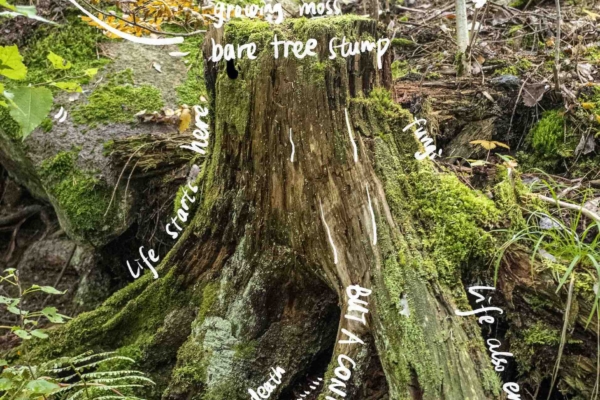 growing moss
bare tree stump
Life starts here.
fungi
BUT A CON
Life also en
death